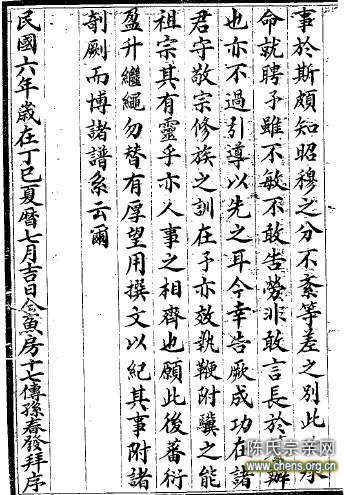 事於斯頗知昭穆之分不紊等差之別此承
命就聘予雖不敏不敢告勞非敢言長於辦
也亦不過引導以先之耳今幸告厥成功在諸
君守敬宗修族之訓在予亦效執鞭附驥之能
祖宗其有靈乎亦人事之相齊也願此後蕃衍
盈升繼繩勿替有厚望用撰文以紀其事附諸
剞劂而博諸譜系云爾
民國六年歲在丁巳夏曆七月吉日寅房十七傳孫春發拜序
陈氏宗亲网
www.chens.org.cn